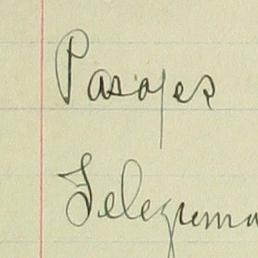 Pasajes
Telegrama